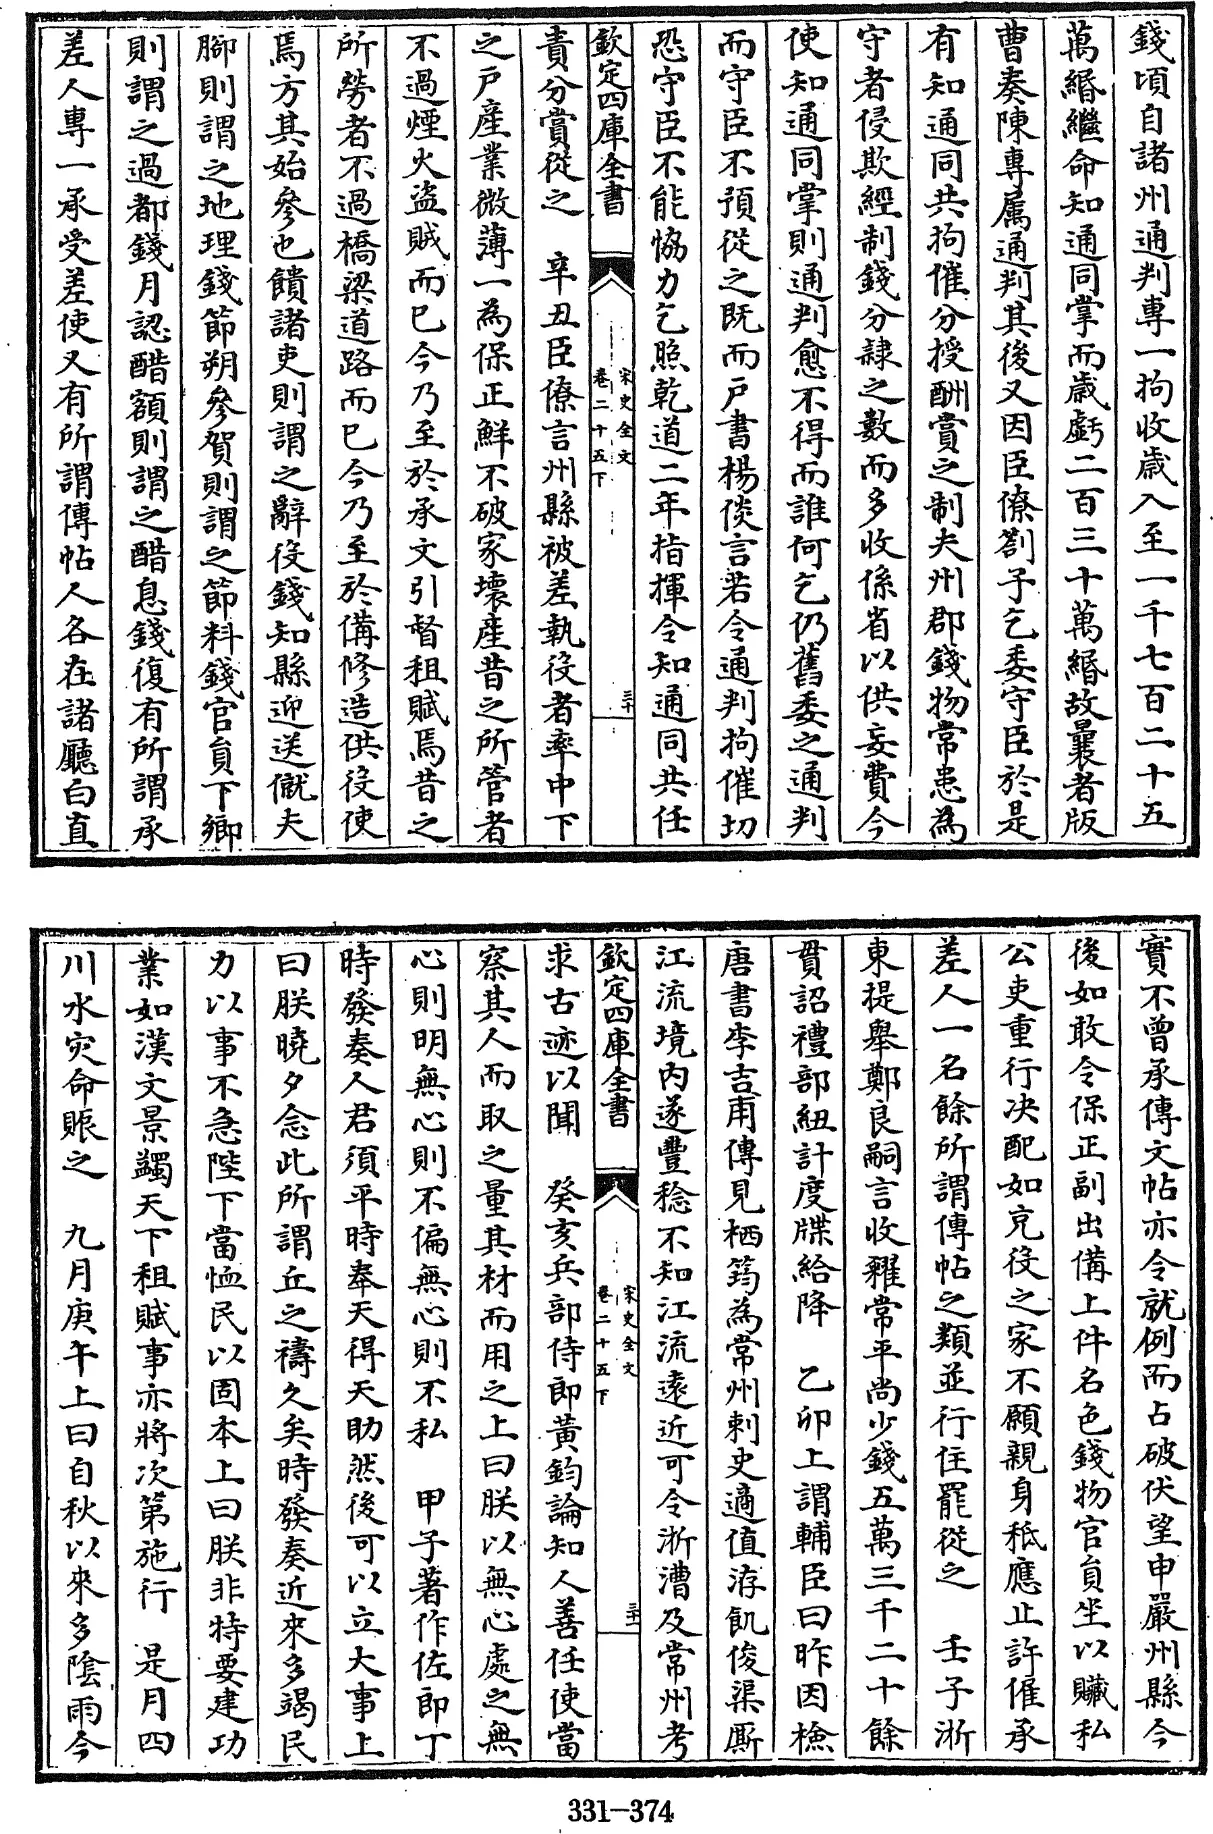 錢頃自諸州通判專一拘收歲入至一千七百二十五
萬緡繼命知通同掌而歲虧二百三十萬緡故曩者版
曹奏陳專屬通判其後又因臣僚劄子乞委守臣於是
有知通同共拘催分授酬賞之制夫州郡錢物常患為
守者侵欺經制錢分隷之數而多收係省以供妄費今
使知通同掌則通判愈不得而誰何乞仍舊委之通判
而守臣不預從之既而户書楊倓言若令通判拘催切
恐守臣不能恊力乞照乾道二年指揮令知通同共任
欽定四庫全書
宋史全文
卷二十五下
三十
責分賞從之　辛丑臣僚言州縣被差執役者率中下
之户産業微薄一為保正鮮不破家壞産昔之所管者
不過煙火盜賊而已今乃至於承文引督租賦焉昔之
所勞者不過橋梁道路而已今乃至於備修造供役使
焉方其始參也饋諸吏則謂之辭役錢知縣迎送僦夫
脚則謂之地理錢節朔參賀則謂之節料錢官員下鄉
則謂之過都錢月認醋額則謂之醋息錢復有所謂承
差人專一承受差使又有所謂傳帖人各在諸廳白直
實不曾承傳文帖亦令就例而占破伏望申嚴州縣今
後如敢令保正副出備上件名色錢物官員坐以贓私
公吏重行决配如充役之家不願親身秪應止許催承
差人一名餘所謂傳帖之類並行住罷從之　壬子浙
東提舉鄭良嗣言收糴常平尚少錢五萬三千二十餘
貫詔禮部紐計度牒給降　乙卯上謂輔臣曰昨因檢
唐書李吉甫傳見栖筠為常州刺史適值洊飢俊渠厮
江流境内遂豐稔不知江流遠近可令浙漕及常州考
欽定四庫全書
宋史全文
卷二十五下
求古迹以聞　癸亥兵部侍郎黄鈞論知人善任使當
察其人而取之量其材而用之上曰朕以無心處之無
心則明無心則不偏無心則不私　甲子著作佐郎丁
時發奏人君須平時奉天得天助然後可以立大事上
曰朕曉夕念此所謂丘之禱久矣時發奏近來多竭民
力以事不急陛下當恤民以固本上曰朕非特要建功
業如漢文景蠲天下租賦事亦將次第施行　是月四
川水灾命賑之　九月庚午上曰自秋以來多陰雨今
331-374